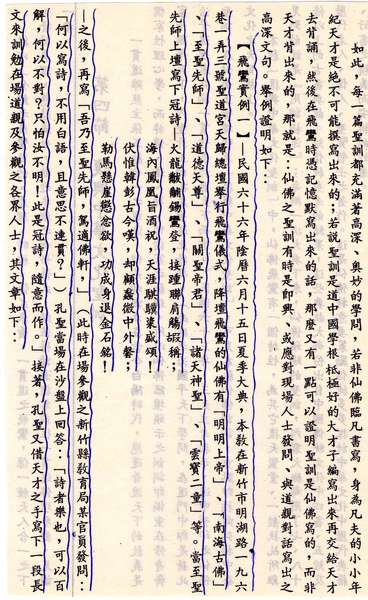 如此,每一篇聖訓都充滿著高深、奧妙的學問,若非仙佛臨凡書寫,身為凡夫的小小年
紀天才是絕不可能撰寫出來的;若說聖訓是道中國學根柢極好的大才子編寫出來再交給天才
去背誦,然後在飛鸞時憑記憶默寫出來的話,那麼又有一點可以證明聖訓是仙佛寫的,而非
天才背出來的,那就是:仙佛之聖訓有時是即興、或應對現場人士發問、與道親對話寫出之
高深文句。舉例證明如下:
【飛鸞實例一】—民國六十六年陰曆六月十五日夏季大典,本教在新竹市明湖路一九六
巷一弄三號聖道宮天歸總壇舉行飛鸞儀式,降壇飛鸞的仙佛有「明明上帝」、「南海古佛」
、「至聖先師」、「道德天尊」、「關聖帝君」、「諸天神聖」、「雲寶二童」等。當至聖
先師上壇寫下冠詩—火龍黻黼錫鸞登,接踵聯肩觴嘏稱;
海內鳳凰旨酒祝,天涯騏驥桼盛頌!
伏惟韓彭古今嘆,却顧蠡徵中外馨;
勒馬懸崖懲忿欲,功成身退金石銘!
—之後,再寫「吾乃至聖先師,駕適佛軒,」(此時在場參觀之新竹縣敎育局某官員發問:
「何以寫詩,不用白語,且意思不連貫?」)孔聖當場在沙盤上回答:「詩者樂也,可以百
解,何以不對?只怕汝不明!此是冠詩,隨意而作。」接著,孔聖又借天才之手寫下一段長
文來訓勉在場道親及參觀之各界人士,其文章如下: